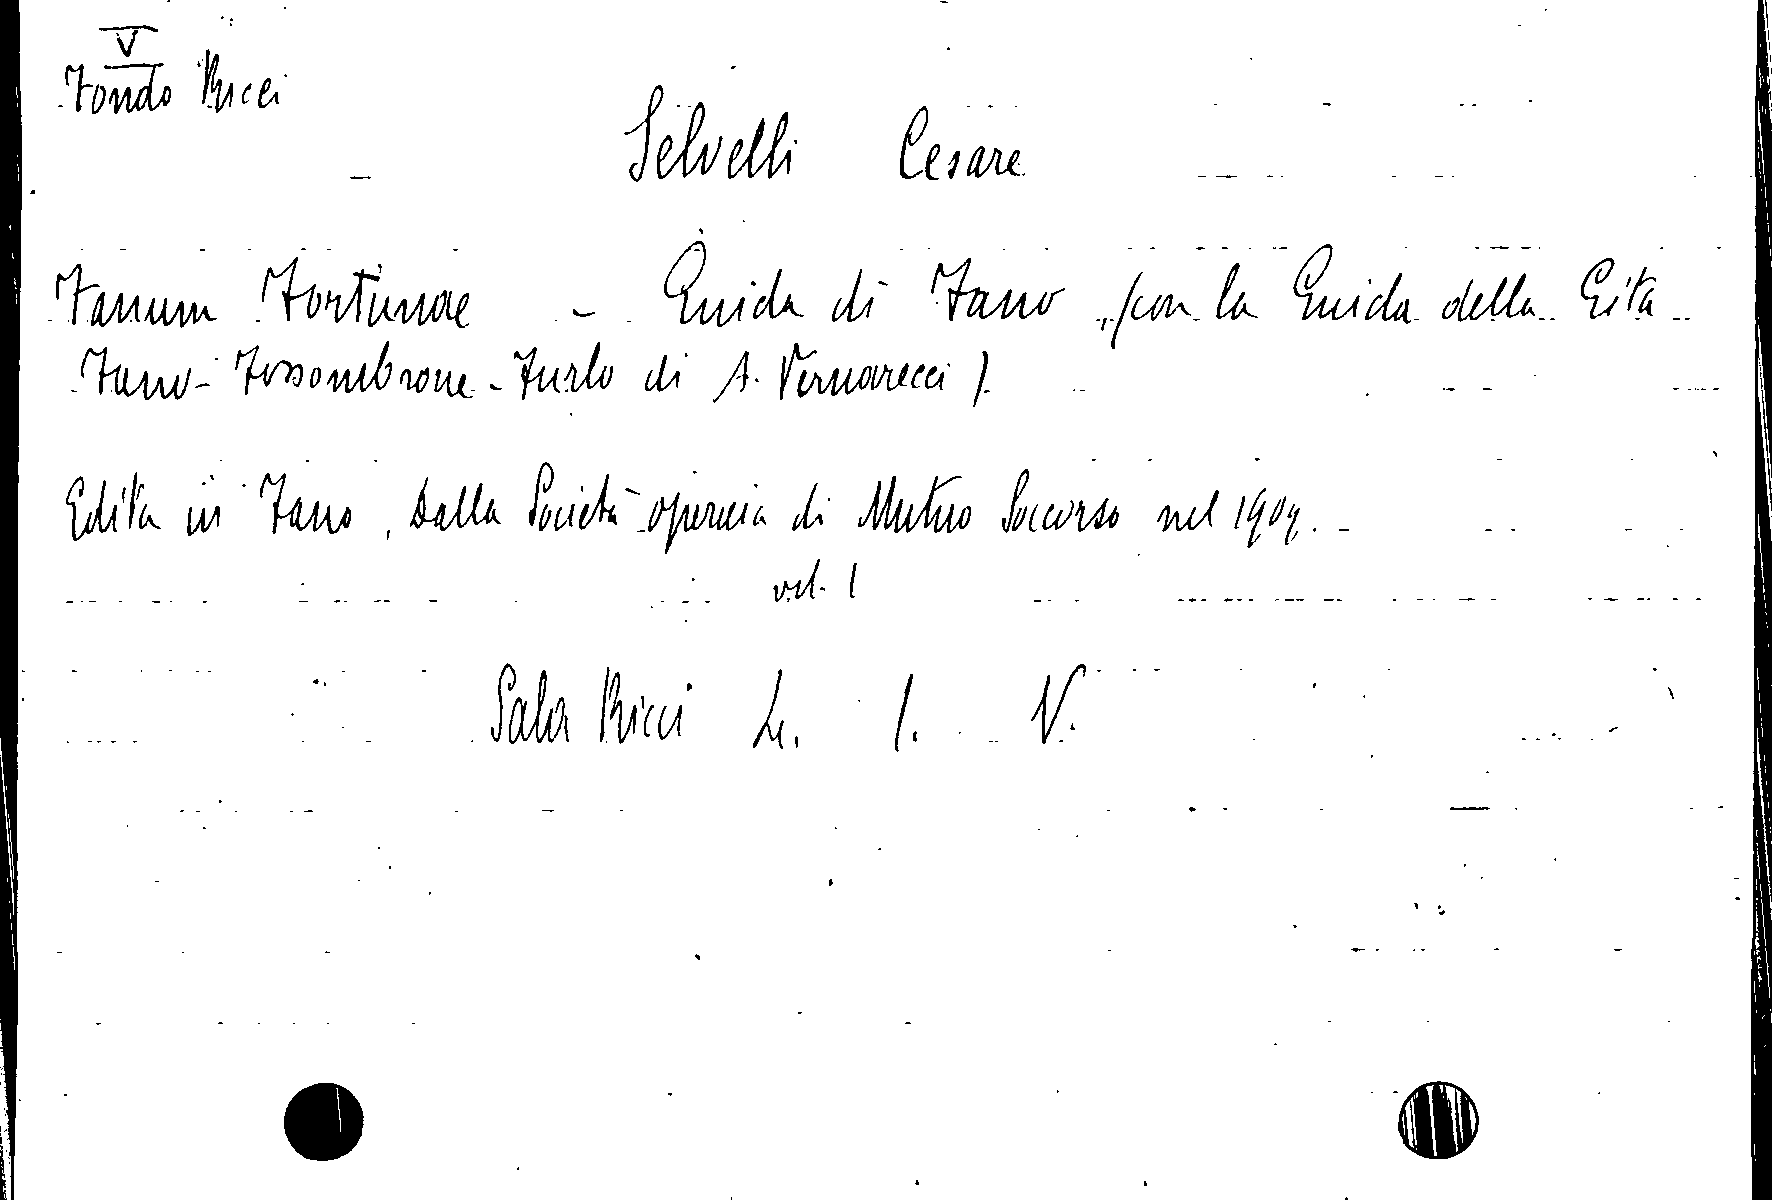 V
Fondo Ricci
Selvelli Cesare
Fanum Fortunae - Guida di Fano (con la Guida della Gita
Fano - Fossombrone - Furlo di A. Vernarecci)
Edita in Fano, dalla Società operaia di Mutuo Soccorso nel 1909.
vol. 1
Sala Ricci L. I. V.